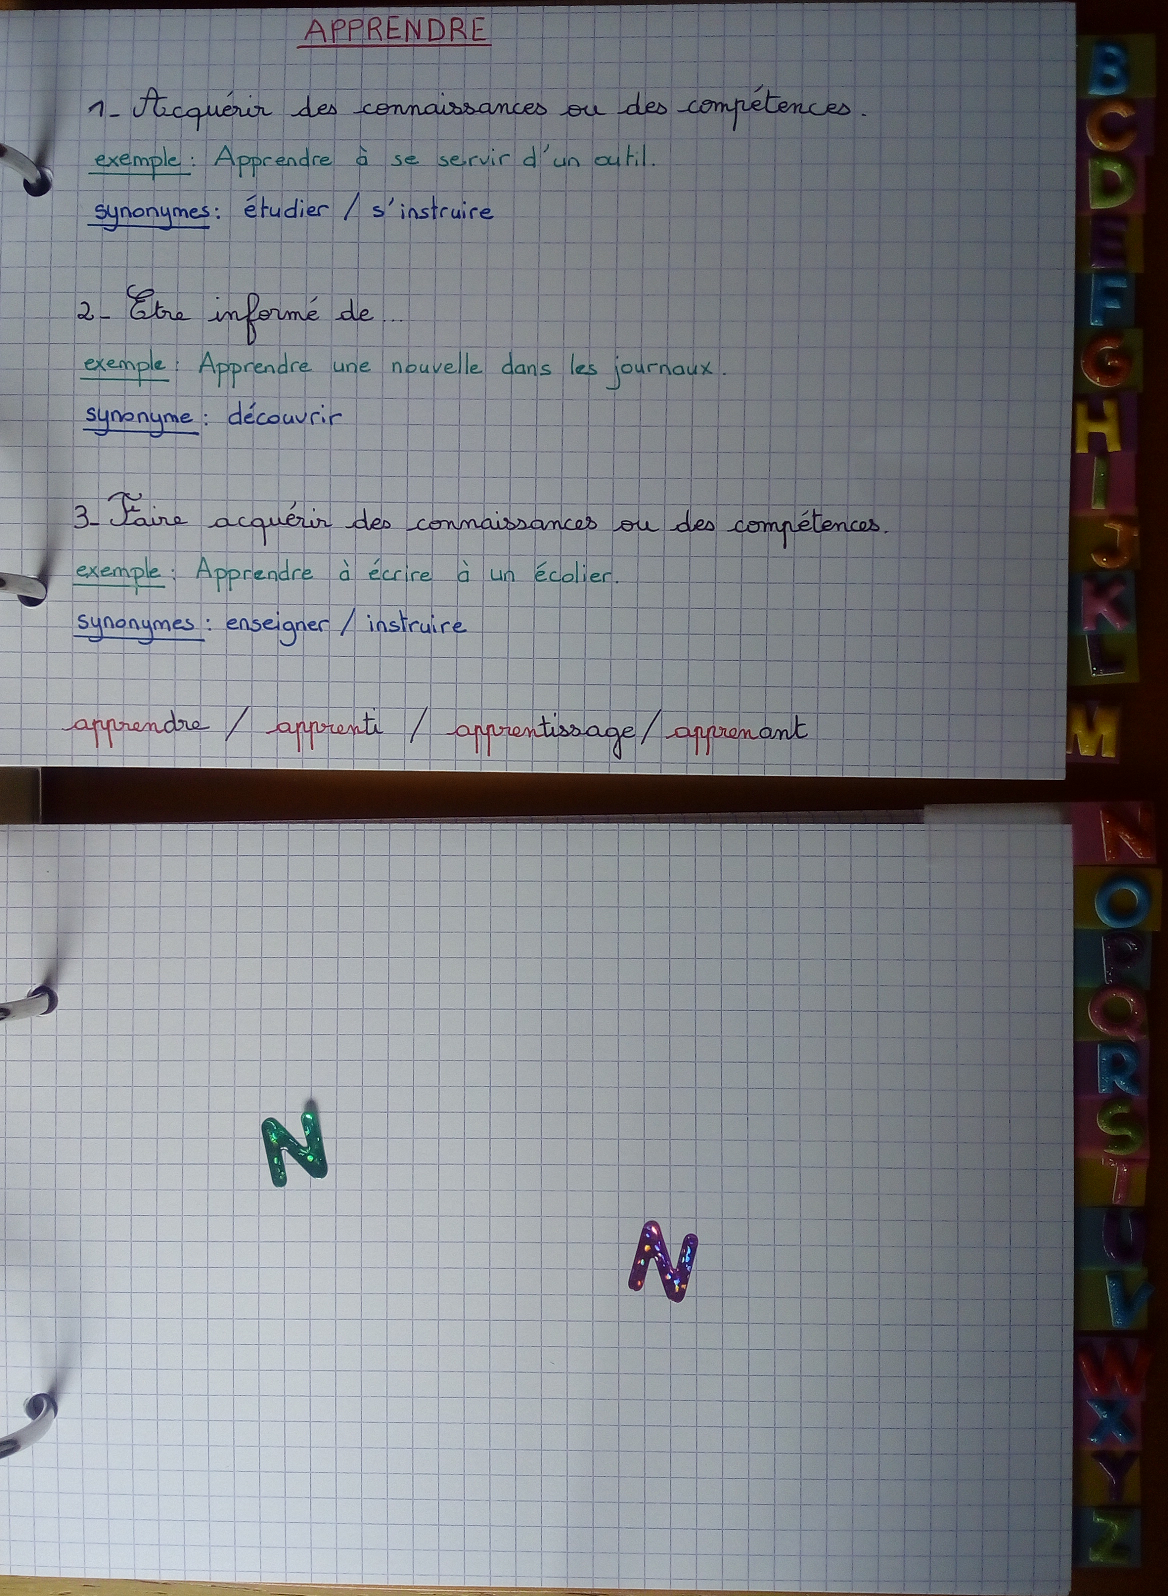 APPRENDRE
1- Acquérir des connaissances ou des compétences.
exemple : Apprendre à se servir d'un outil.
synonymes : étudier / s'instruire
2- Etre informé de...
exemple : Apprendre une nouvelle dans les journaux.
synonyme : découvrir
3- Faire acquérir des connaissances ou des compétences.
exemple : Apprendre à écrire à un écolier.
synonymes : enseigner / instruire
apprendre / apprenti / apprentissage / apprenant
B
C
D
E
F
G
H
I
J
K
L
M
N
O
P
Q
R
S
T
U
V
W
X
Y
Z
N
N